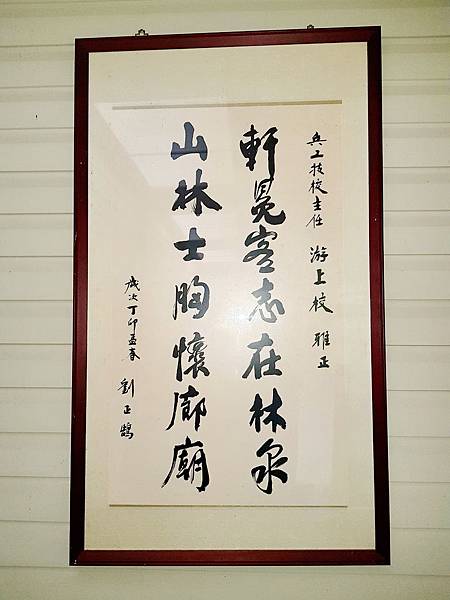 兵工技校主任 游上校 雅正
軒冕客志在林泉
山林士胸懷廊廟
歲次丁卯孟春 劉正鵠